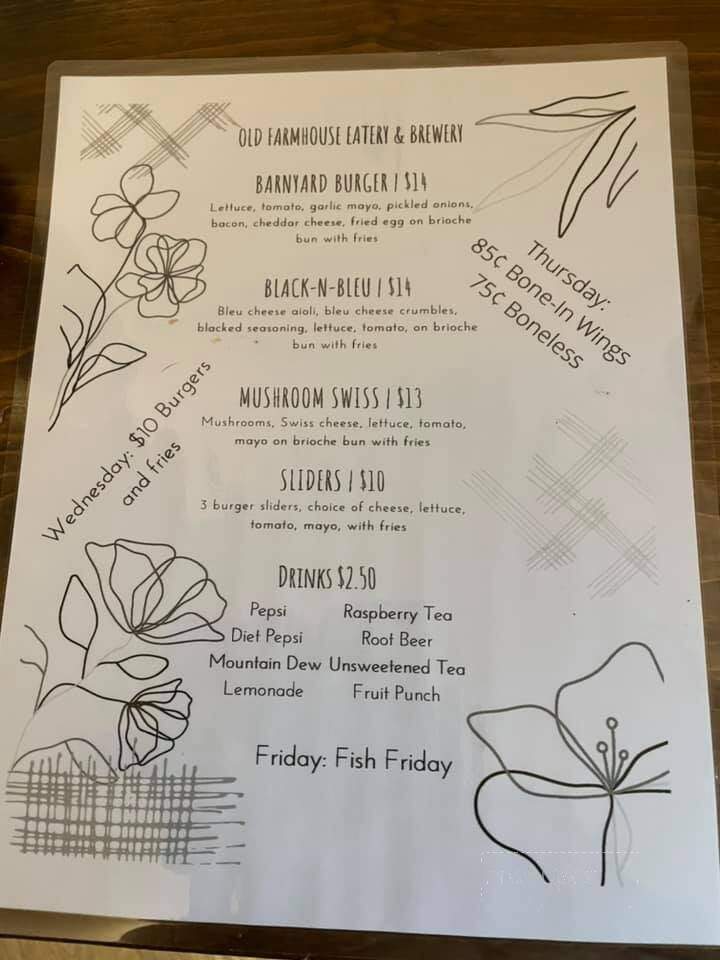 OLD FARMHOUSE EATERY & BREWERY
BARNYARD BURGER | $14
Lettuce, tomato, garlic mayo, pickled onions,
bacon, cheddar cheese, fried egg on brioche
bun with fries
Thursday:
85¢ Bone-In Wings
75¢ Boneless
BLACK-N-BLEU | $14
Bleu cheese aioli, bleu cheese crumbles,
blacked seasoning, lettuce, tomato, on brioche
bun with fries
Wednesday: $10 Burgers
and fries
MUSHROOM SWISS | $13
Mushrooms, Swiss cheese, lettuce, tomato,
mayo on brioche bun with fries
SLIDERS | $10
3 burger sliders, choice of cheese, lettuce,
tomato, mayo, with fries
DRINKS $2.50
Pepsi Raspberry Tea
Diet Pepsi Root Beer
Mountain Dew Unsweetened Tea
Lemonade Fruit Punch
Friday: Fish Friday